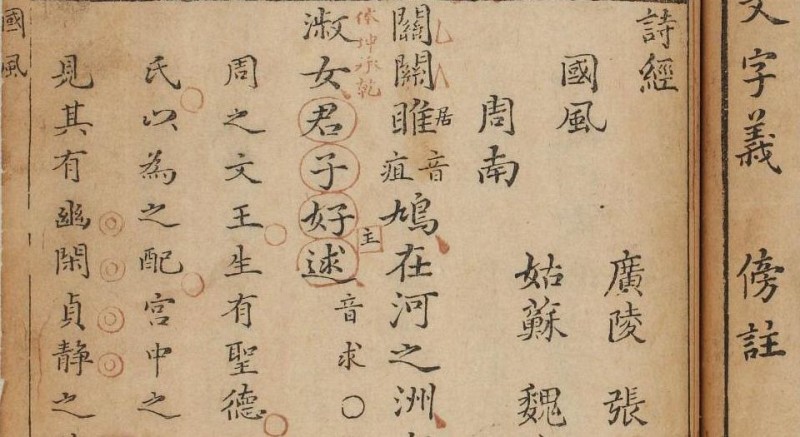 文字義 傍註
詩經
廣陵 張
國風
姑蘇 魏
周南
關關雎居音疽鳩在河之洲
淑女君子好逑主音求○
周之文王生有聖德
氏以為之配宮中之
見其有幽閑貞静之
國風